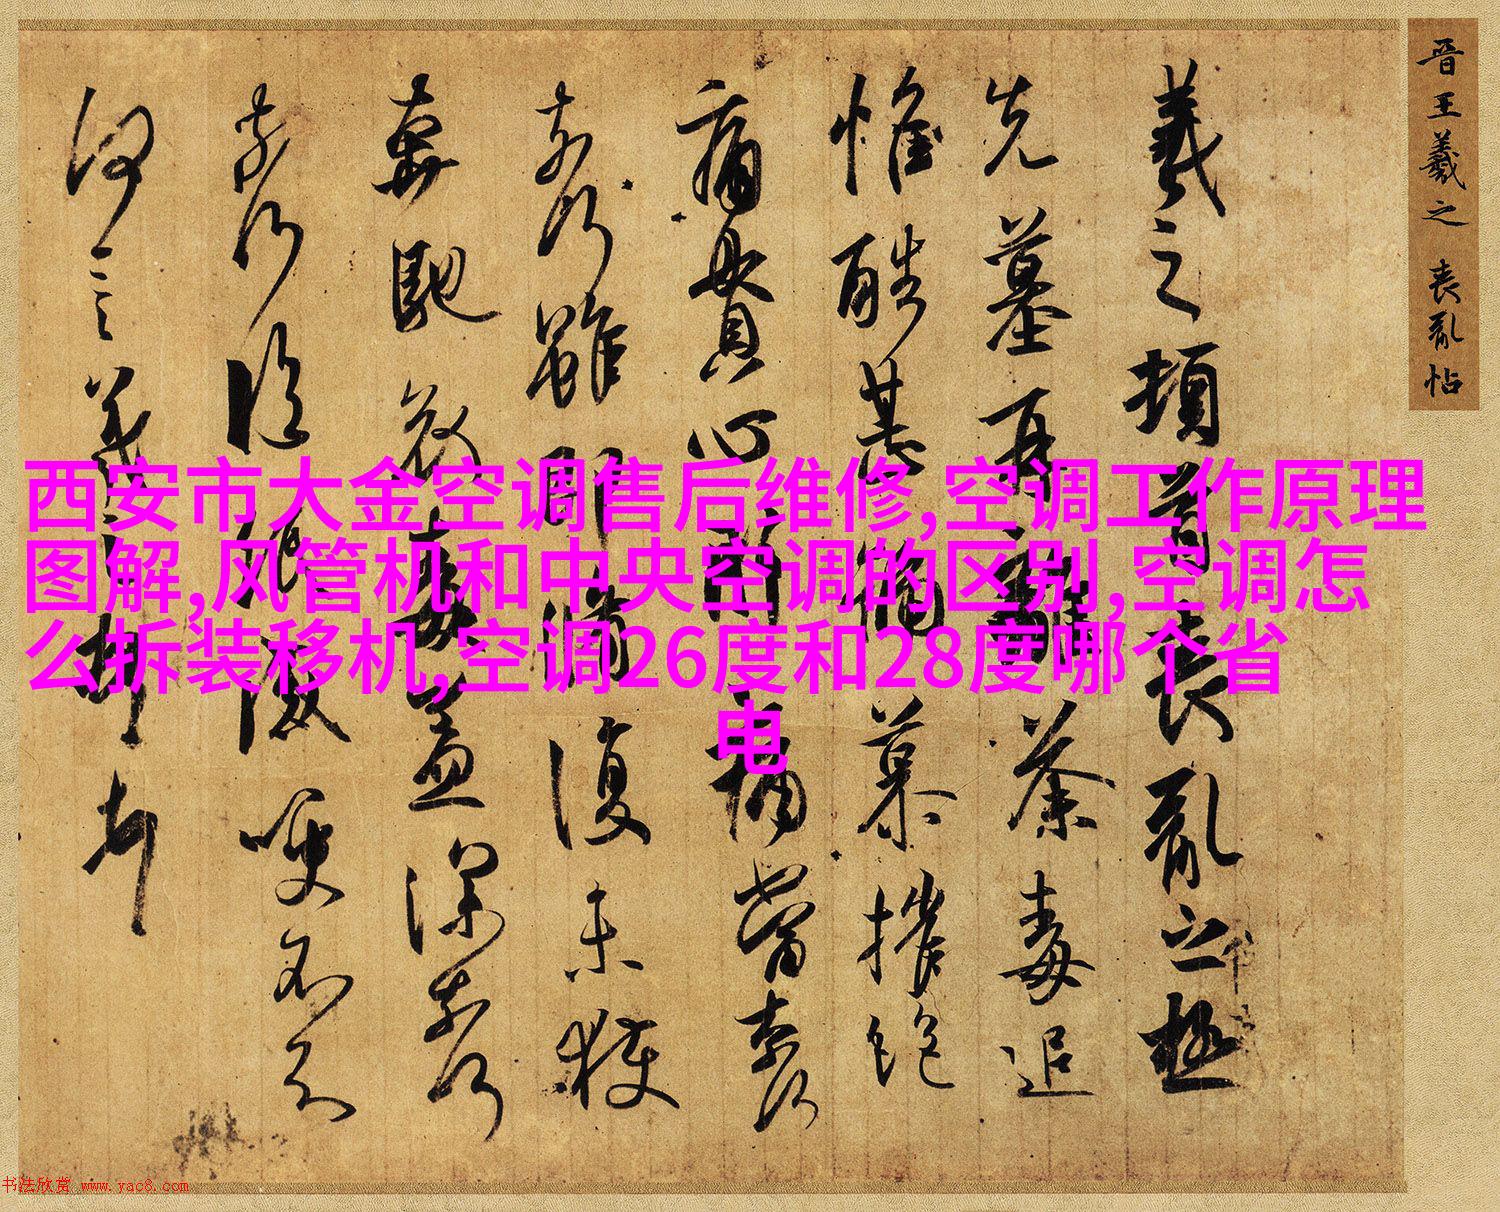 晋王羲之 喪亂帖
羲之頓首喪亂之極
先墓再離荼毒追
惟酷甚號慕摧絕
痛貫心肝痛當奈何
奈何雖即脩復未獲
奔馳哀毒益深奈何
奈何臨紙感哽不知
何言羲之頓首
西安市大金空调售后维修,空调工作原理
图解,风管机和中央空调的区别,空调怎
么拆装移机,空调26度和28度哪个省
电
书法欣赏 www.yac8.com